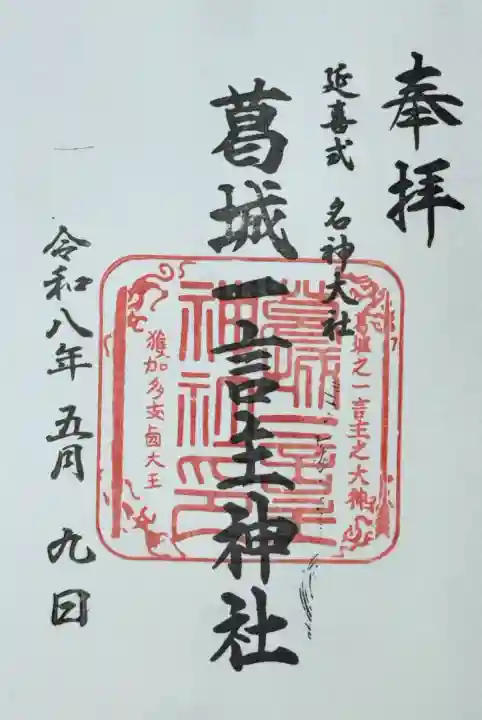 奉拝
延喜式 名神大社
葛城一言主神社
葛城之一言主之大神
葛城一言主神社印
獲加多支鹵大王
令和八年 五月 九日